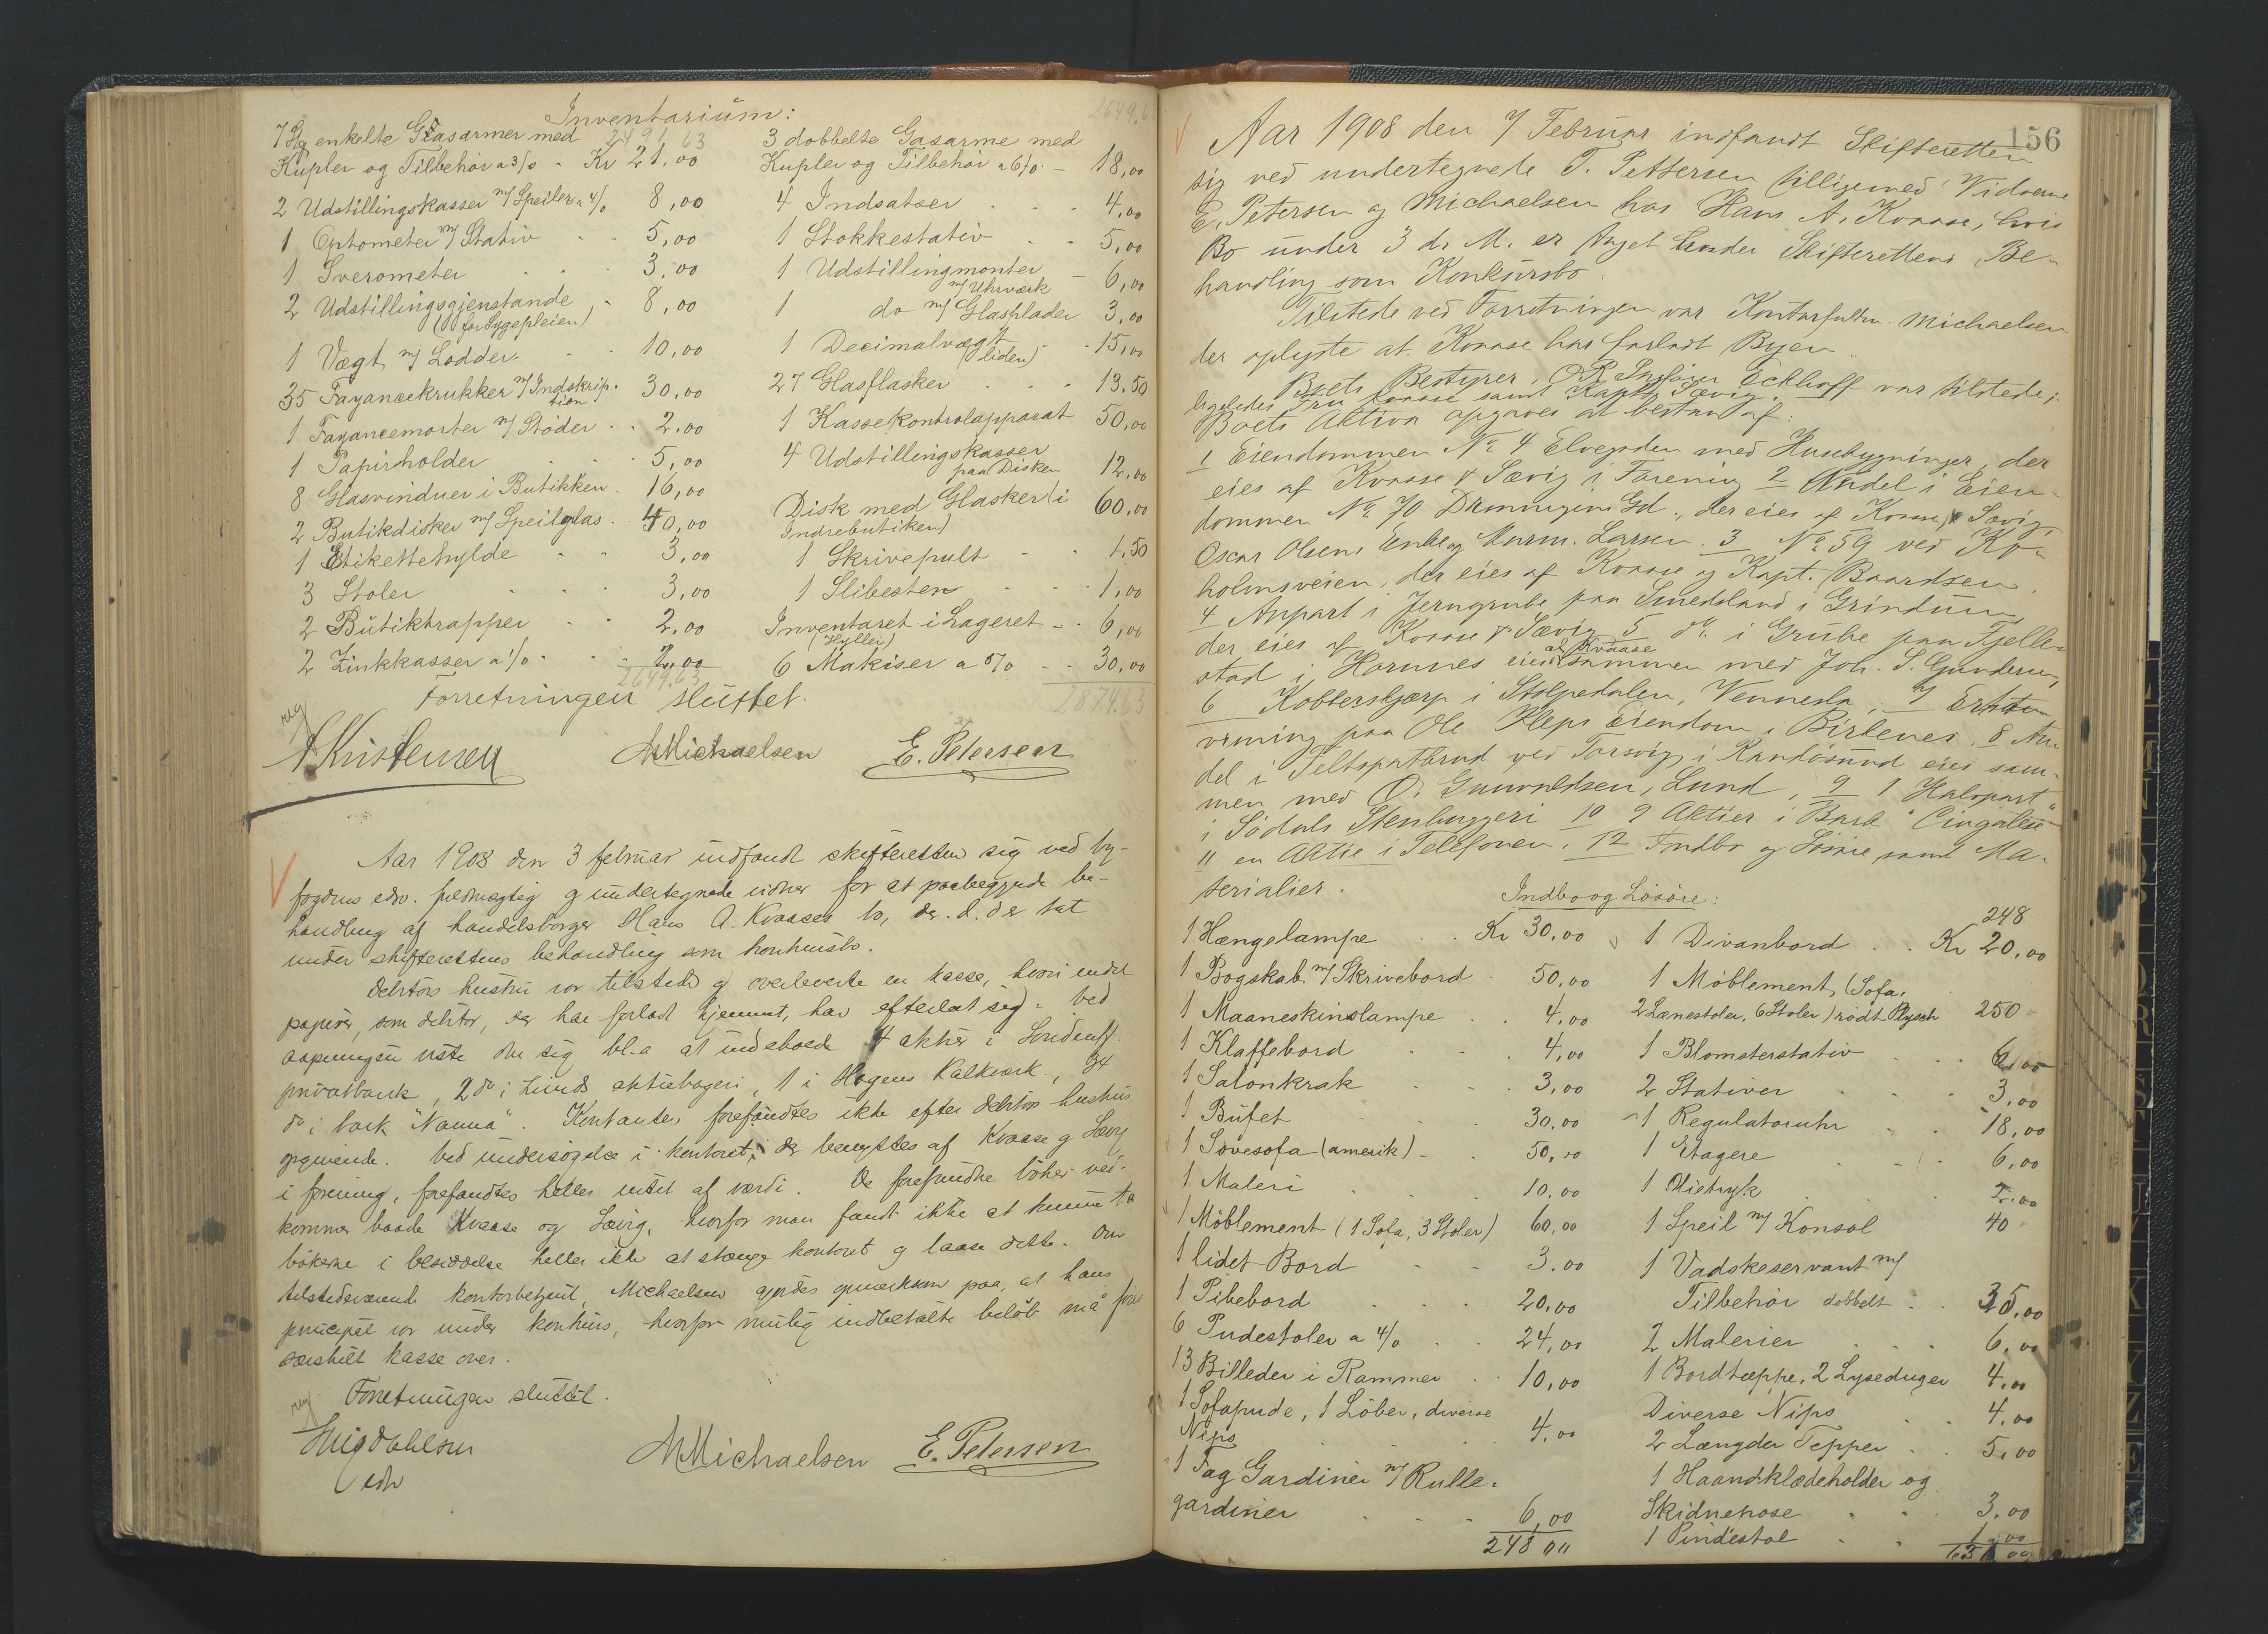 Inventarium:
2491,63
7 Stk enkelte Gasarmer med
Kupler og Tilbehör a 3/0 - Kr 21,00
2 Udstillingskasser m/ Speiler a 4/0 8,00
1 Optometer m/ Stativ - - 5,00
1 Sverometer - - 3,00
2 Udstillingsgjenstande - 8,00
(for Sygepleien)
1 Vægt m/ Lodder - - 10,00
35 Fayancekrukker m/ Indskrip-
tion 30,00
1 Fayancemorter m/ Stöder - - 2,00
1 Papirholder - - 5,00
8 Glasvinduer i Butikken - 16,00
2 Butikdisker m/ Speilglas - 40,00
1 Etikettehylde - - 3,00
3 Stoler - - - 3,00
2 Butiktrapper - - 2,00
2 Zinkkasser a 1/0 - - 2,00
2649,63
2649,63
3 dobbelte Gasarme med
Kupler og Tilbehör a 6/0 - 18,00
4 Indsatser - - - 4,00
1 Stokkestativ - - 5,00
1 Udstillingmonter
m/ Uhrværk - 6,00
1 do m/ Glasplader 3,00
1 Decimalvægt
(liden) - 15,00
27 Glasflasker - - - 13,50
1 Kassekontrolapparat 50,00
4 Udstillingskasser
paa Disken 12,00
Disk med Glasker (i
Indrebutiken) 60,00
1 Skrivepult - - 1,50
1 Slibesten - - - 1,00
Inventaret i Lageret - - 6,00
(Hyller)
6 Makiser a 5/0 - - 30,00
2874,63
Forretningen sluttet.
reg
A Kristensen MMichaelsen E. Petersen
Aar 1908 den 3 februar indfandt skifteretten sig ved by-
fogdens edsv. fuldmægtig g undertegnede vidner for at paabegynde be-
handling af handelsborger Hans A. Kvaases bo, der d. d. er tat
under skifterettens behandling som konkursbo.
Debitors hustru var tilstede g overleverte en kasse, hvori endel
papirer, som debitor, der har forladt hjemmet, har efterlat sig. Ved
aapningen viste den sig bl.a at indeholde 4 aktier i
privatbank, 2 do i Lunds aktiebageri, 1 i Hagens Kalkværk, 34
do i bark "Nanna". Kontanter forefandtes ikke efter debitors hustrus
opgivende. Ved undersögelse i kontoret, der benyttes af Kvaase g Sævig
i forening, forefandtes heller intet af værdi. De forefundne böker ved-
kommer baade Kvaase og Sævig, hvorfor man fandt ikke at kunne ta
bökerne i besiddelse heller ikke at stænge kontoret g laase dette. Den
tilstedeværende kontorbetjent, Michaelsen gjordes opmerksom paa, at hans
principal var under konkurs, hvorfor mulig indbetalte belöb må före
særskilt kasse over.
Forretningen sluttet.
reg
edsv
MMichaelsen E. Petersen
156
Aar 1908 den 7 Februar indfandt Skifteretten
sig ved undertegnede T. Pettersen tilligemed Vidnerne
E. Petersen og Michaelsen hos Hans A. Kvaase, hvis
Bo under 3 d. M. er taget under Skifterettens Be-
handling som Konkursbo.
Tilstede ved Forretningen var Kontorfuldm. Michaelsen
der oplyste at Kvaase har forladt Byen.
Boets Bestyrer, O.R. Sagförer Eckhoff var tilstede;
ligeledes Fru Kvaase samt Kapt. Sævig.
Boets Aktiva opgaves at bestaa af:
1 Eiendommen No 4 Elvegaden med Husebygninger, der
eies af Kvaase & Sævig i Forening 2 Andel i Eien-
dommen No 70 Dronningens Gd., der eies af Kvaase, Sævig,
Oscar Olsens Enke og Murm. Larsen. 3 No 59 ved Ko-
holmsveien, der eies af Kvaase og Kapt. Baardsen.
4 Anpart i Jerngrube paa Smedsland i Grindum
der eies af Kvaase & Sævig 5 do. i Grube paa Fjelle-
stad i Hornnes eies af Kvaase sammen med Joh. S. Gundersen,
6 Kobberskjærp i Stolpedalen, Vennesla, 7
paa Ole Kleps Eiendom i Birkenes. 8 An-
del i Feltspatbrud ved Torsvig i Randösund eies sam-
men med O. Gunvaldsen, Lund, 9 1 Halvpart
i Södals Stenhuggeri 10 9 Aktier i Bark "Cingalese"
11 en Aktie i Telefonen. 12 Indbo og Lösöre samt Ma-
terialier.
Indbo og Lösöre:
1 Hængelampe - - Kr 30,00
1 Bogskab m/ Skrivebord - 50,00
1 Maaneskinslampe - - 4,00
1 Klaffebord - - - 4,00
1 Salonkrak - - - 3,00
1 Bufet - - - 30,00
1 Sovesofa (amerik) - - 50,00
1 Maleri - - - 10,00
1 Möblement (1 Sofa, 3 Stoler) 60,00
1 lidet Bord - - 3,00
1 Pibebord - - - 20,00
6 Pindestoler a 4/0 - - 24,00
13 Billeder i Rammer - - 10,00
1 Sofapude, 1 Löber, diverse
Nips - - - 4,00
1 Fag Gardiner m/ Rulle-
gardiner - - - 6,00
248 00
248
1 Divanbord - - Kr 20,00
1 Möblement, (Sofa,
2 Lænestoler, 6 Stoler) rödt Plysch 250
1 Blomsterstativ - - 6,00
2 Stativer - - - 3,00
1 Regulatoruhr - - 18,00
1 Etagere - - - 6,00
1 Olietryk - - -
1 Speil m/ Konsol 40
1 Vadskeservant m/
Tilbehör dobbelt - - 35,00
2 Malerier - - - 6,00
1 Bordtæppe, 2 Lyseduger 4,00
Diverse Nips - - 4,00
2 Længder Tepper - - 5,00
1 Haandklædeholder og
Skidnepose - - 3,00
1 Pindestol - - 1,00